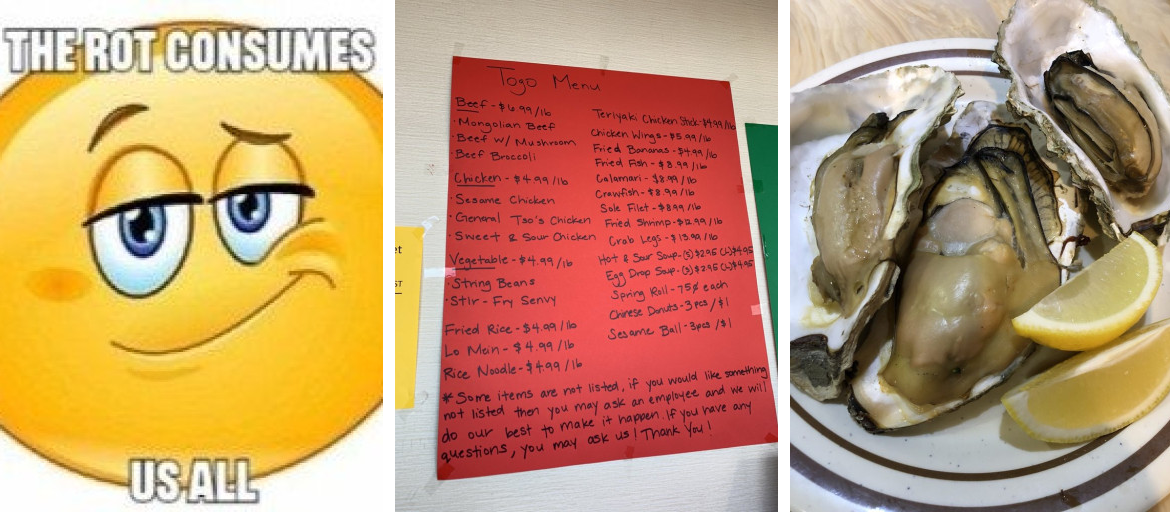 THE ROT CONSUMES
US ALL
Togo Menu
Beef - $6.99/lb
· Mongolian Beef
· Beef w/ Mushroom
· Beef Broccoli
Chicken - $4.99/lb
· Sesame Chicken
· General Tso's Chicken
· Sweet & Sour Chicken
Vegetable - $4.99/lb
· String Beans
· Stir-Fry Senvy
Fried Rice - $4.99/lb
Lo Mein - $4.99/lb
Rice Noodle - $4.99/lb
Teriyaki Chicken Stick - $4.99/lb
Chicken Wings - $5.99/lb
Fried Bananas - $4.99/lb
Fried Fish - $8.99/lb
Calamari - $8.99/lb
Crawfish - $8.99/lb
Sole Filet - $8.99/lb
Fried Shrimp - $12.99/lb
Crab Legs - $13.99/lb
Hot & Sour Soup - (S) $2.95 (L) $4.95
Egg Drop Soup - (S) $2.95 (L) $4.95
Spring Roll - 75¢ each
Chinese Donuts - 3pcs / $1
Sesame Ball - 3pcs / $1
* Some items are not listed, if you would like something
not listed then you may ask an employee and we will
do our best to make it happen. If you have any
questions, you may ask us! Thank you!